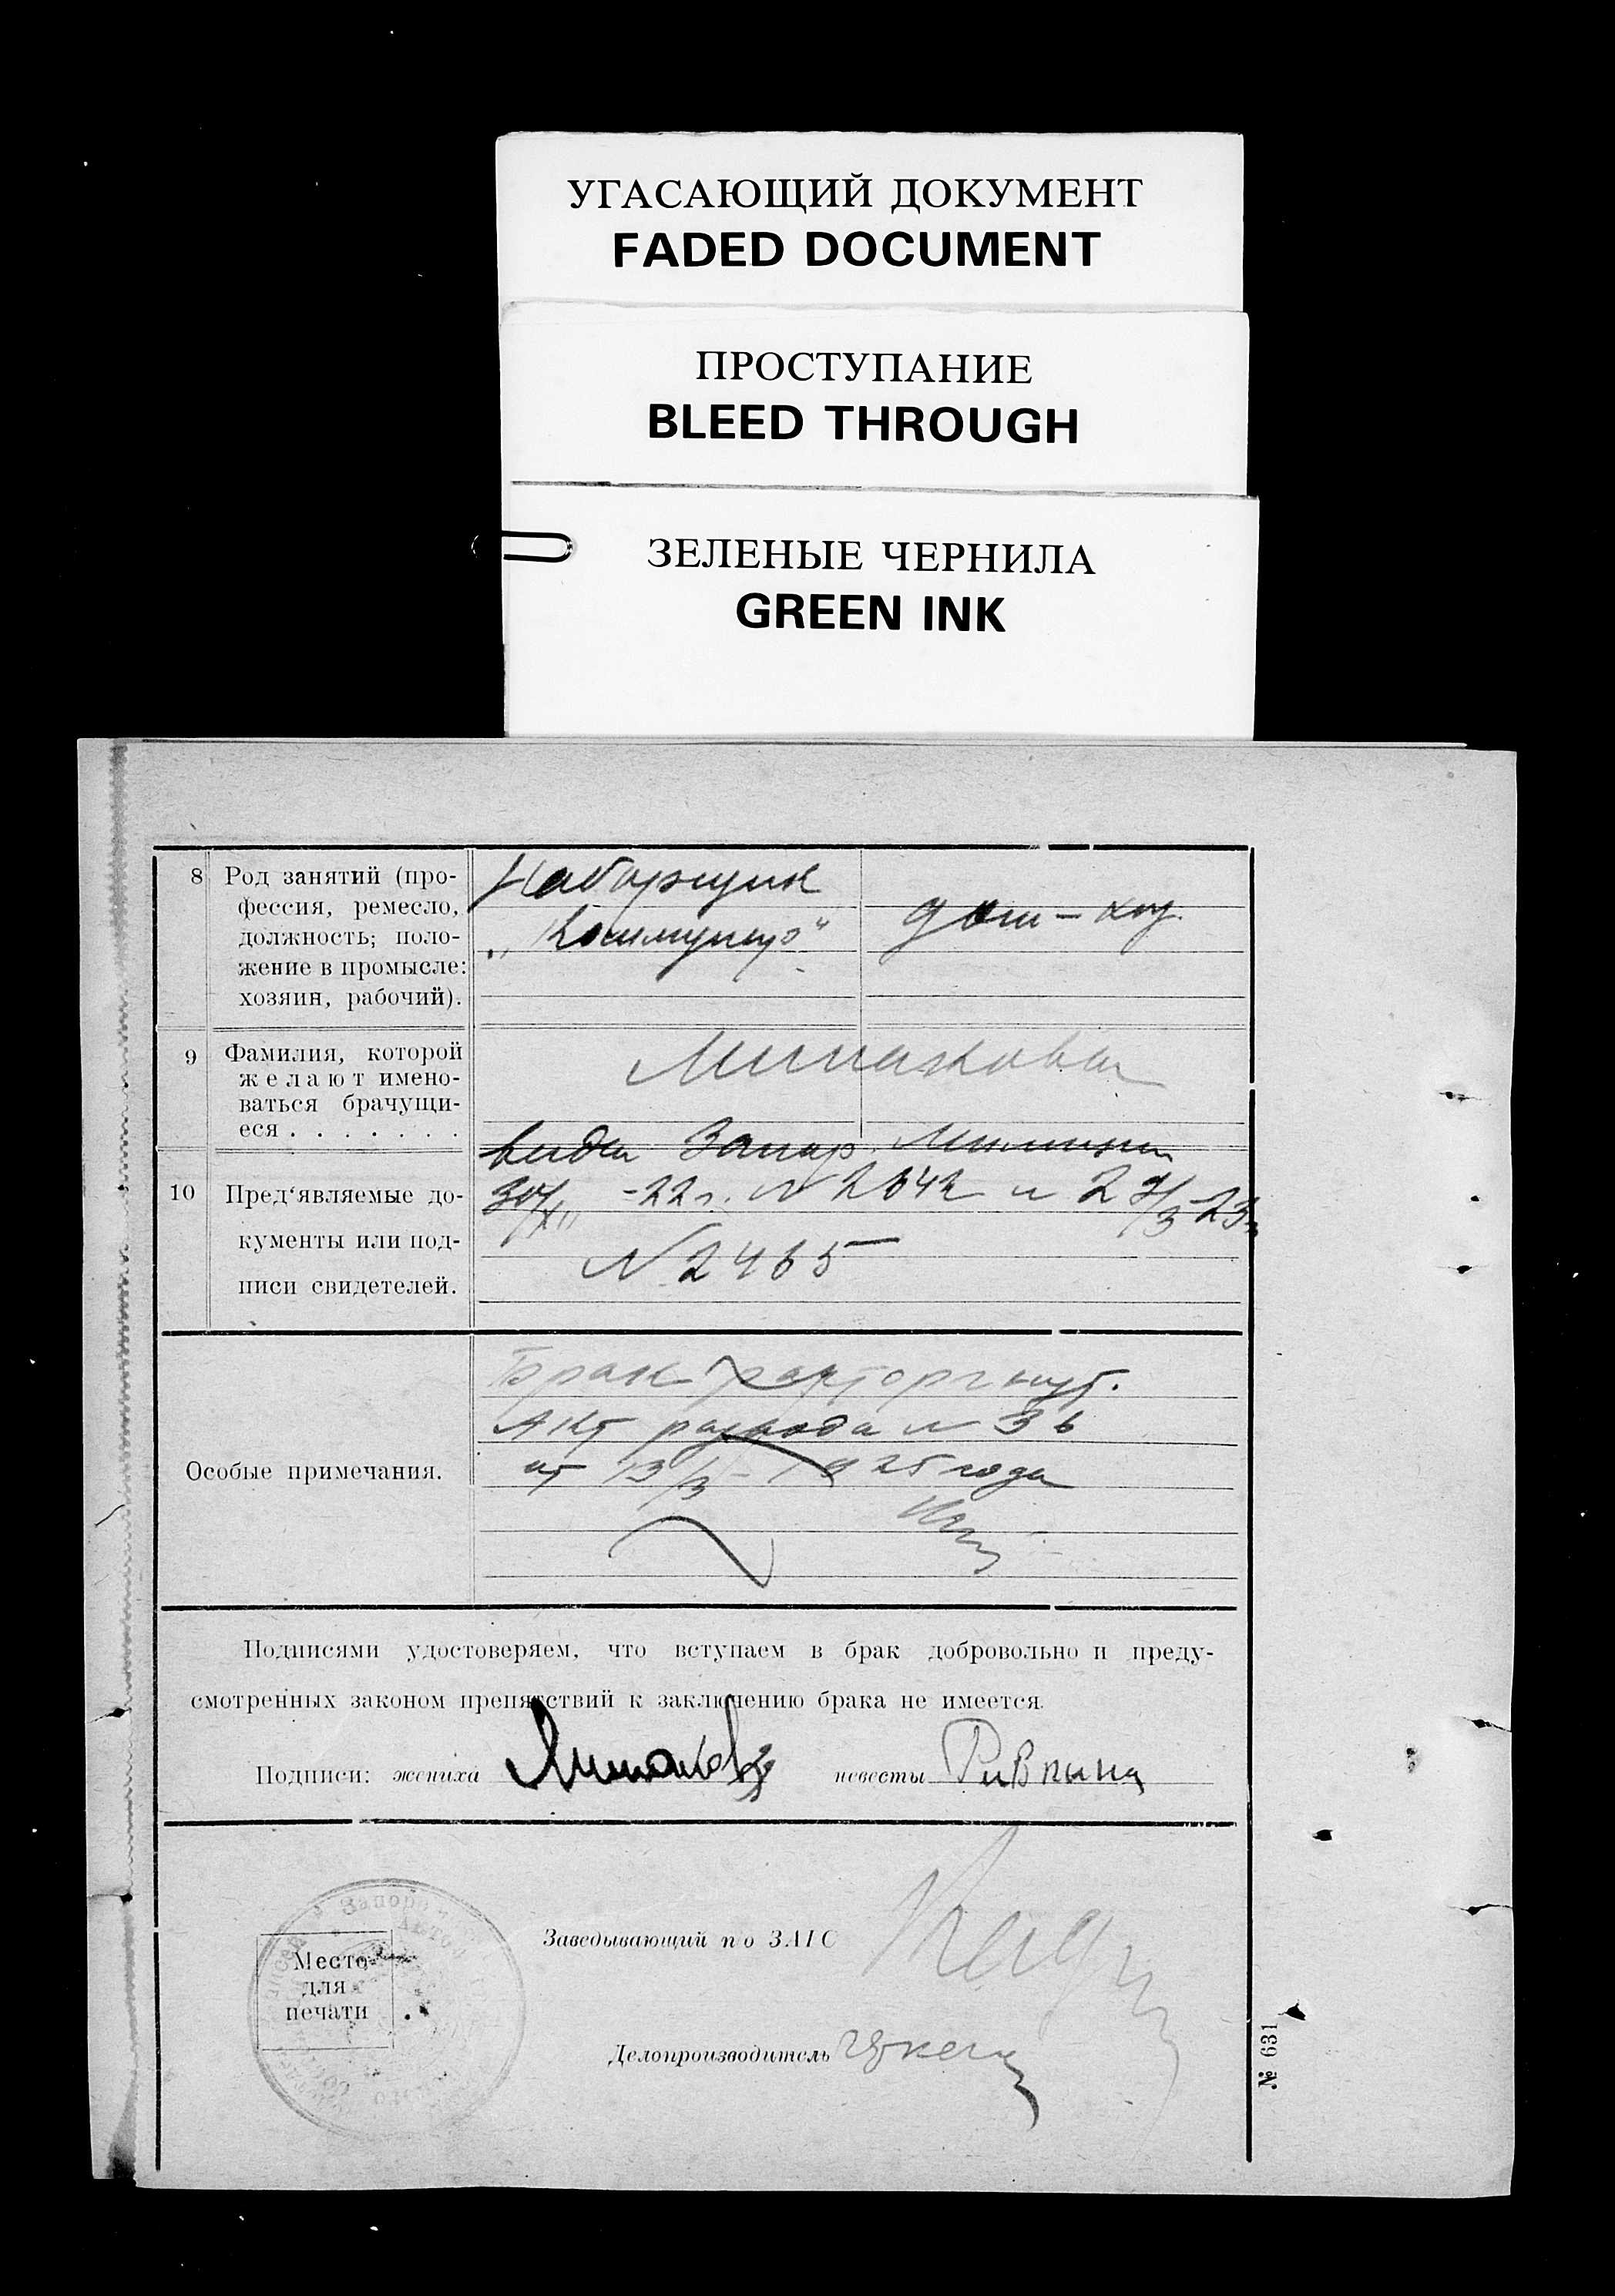 УГАСАЮЩИЙ ДОКУМЕНТ
FADED DOCUMENT
ПРОСТУПАНИЕ
BLEED THROUGH
ЗЕЛЕНЫЕ ЧЕРНИЛА
GREEN INK
8 Род занятий (про-
фессия, ремесло,
должность; поло-
жение в промысле:
хозяин, рабочий).
Наборщик
дом-хоз.
9 Фамилия, которой
желают имено-
ваться брачущи-
еся . . . . . . .
Минакова
10 Пред'являемые до-
кументы или под-
писи свидетелей.
виды Запор. Милиции
30/XII -22г. № 2642 и 27/3-23г
№ 2465
Особые примечания.
Брак расторгнут.
Акт развода № 36
от 13/3-1925 года
Подписями удостоверяем, что вступаем в брак добровольно и преду-
смотренных законом препятствий к заключению брака не имеется.
Подписи: жениха Минаков невесты Ривкина
Заведывающий по ЗАГС
Место
для
печати
Делопроизводитель
№ 631